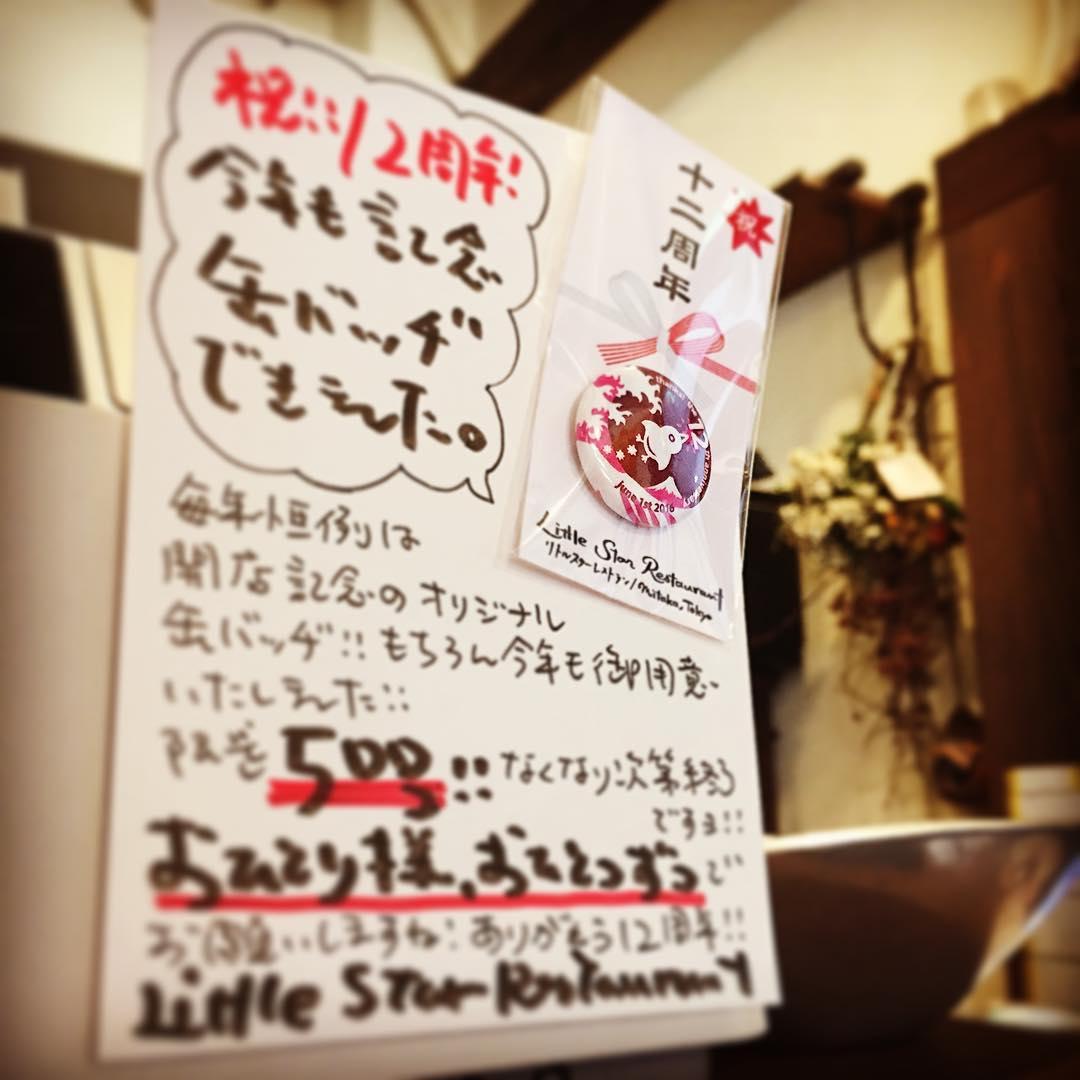 祝!!12周年!
今年も記念
缶バッヂ
できました。
毎年恒例は
開店記念のオリジナル
缶バッヂ!!もちろん今年も御用意
いたしました!!
限定500!!なくなり次第終了
ですョ!!
おひとり様、おひとつずつで
お願いしますね!ありがとう12周年!!
Little Star Restaurant
祝
十二周年
thanks!
12th anniversary
June 1st 2016
Little Star Restaurant
リトルスターレストラン/Mitaka, Tokyo